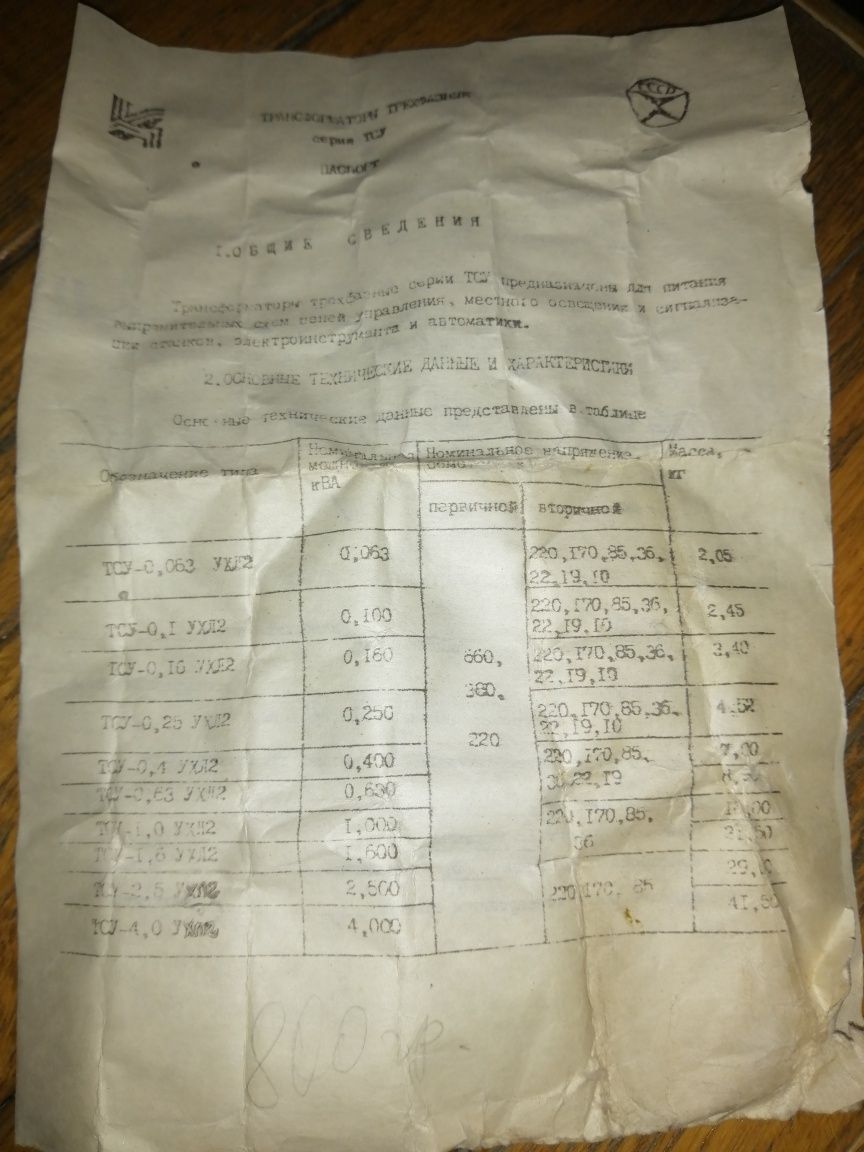 СССР
ТРАНСФОРМАТОРЫ ТРЕХФАЗНЫЕ
серия ТСУ
ПАСПОРТ
I.ОБЩИЕ СВЕДЕНИЯ
Трансформаторы трехфазные серии ТСУ предназначены для питания
выпрямительных схем цепей управления, местного освещения и сигнализа-
ции станков, электроинструмента и автоматики.
2.ОСНОВНЫЕ ТЕХНИЧЕСКИЕ ДАННЫЕ И ХАРАКТЕРИСТИКИ
Основные технические данные представлены в таблице
Обозначение типа Номинальная кВА Номинальное напряжение, Масса, кг
первичной вторичной
ТСУ-0,063 УХЛ2 0,063 220,170,85,36, 2,05
22,19,10
ТСУ-0,1 УХЛ2 0,100 220,170,85,36, 2,45
22,19,10
ТСУ-0,16 УХЛ2 0,160 660, 220,170,85,36, 3,40
380, 22,19,10
ТСУ-0,25 УХЛ2 0,250 220,170,85,36, 4,52
220 22,19,10
ТСУ-0,4 УХЛ2 0,400 220,170,85, 7,00
ТСУ-0,63 УХЛ2 0,630 36,22,19
ТСУ-1,0 УХЛ2 1,000 220,170,85,
ТСУ-1,6 УХЛ2 1,600 36 21,50
ТСУ-2,5 УХЛ2 2,500 220,170,85 29,10
ТСУ-4,0 УХЛ2 4,000
800 гр.